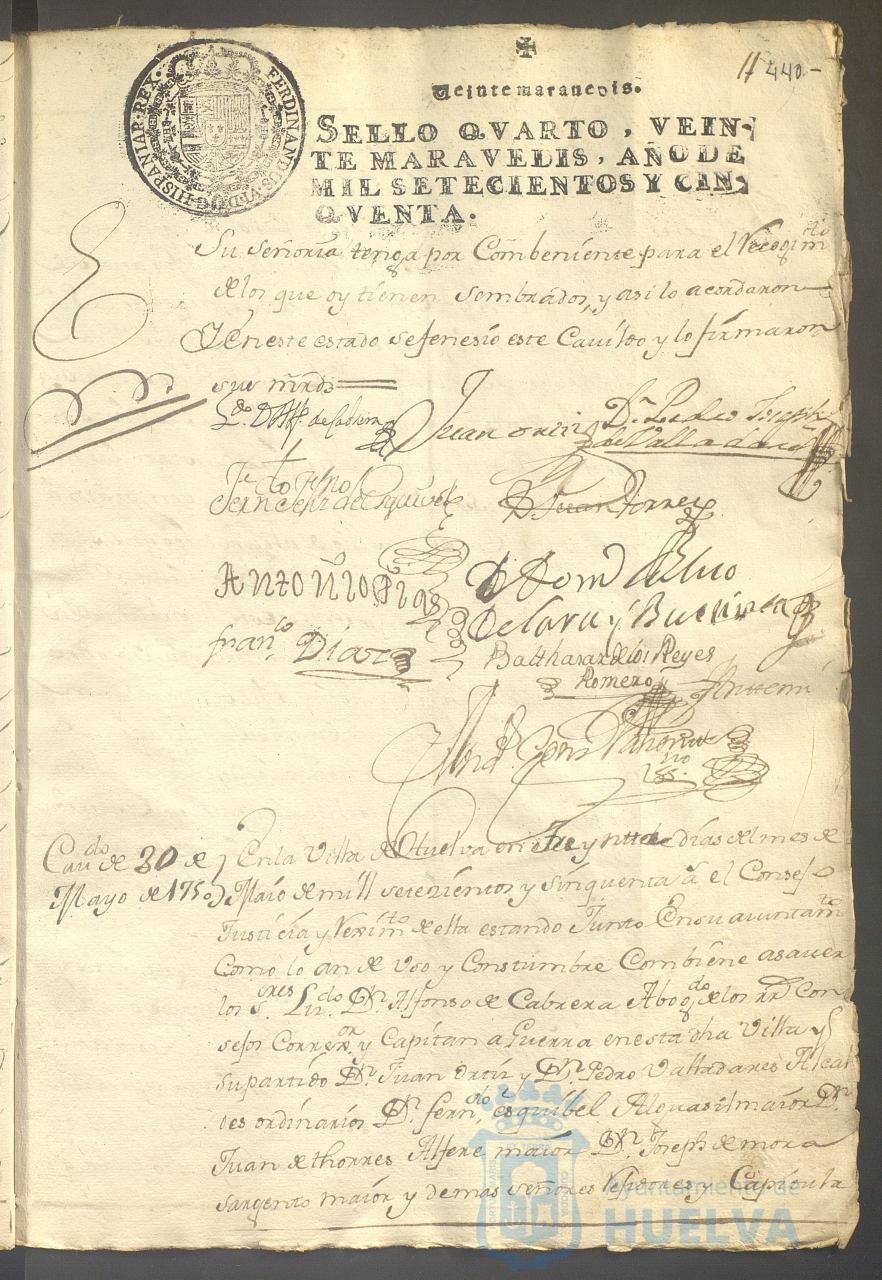 11 440.-
Veinte maravedis.
SELLO QVARTO, VEIN-
TE MARAVEDIS, AÑO DE
MIL SETECIENTOS Y CIN-
QVENTA.
FERDINANDUS·VI·D·G·HISPANIAR·REX·
Su señoria tenga por Combeniente para el Recogim.to
de los que oy tienen sembrados, y asi lo acordaron
Y en este estado se fenesio este Cavildo y lo firmaron
sus mrds
L.do D. Alf. de Cabrera
Juan ortiz
D.n Pedro Joseph
de Valladares
de esquivel
D. Juan torres
Antoñio
de Lara y
fran.co Diaz
Balthasar de los Reyes
Romero
Ante mi
Cav.do de 30 de
Mayo de 1750
En la Villa de Huelva en treynta dias del mes de
Maio de mill setezientos y sinquenta a.s el Consejo
Justicia y Reximi.to de ella estando Junto En su aiuntam.to
Como lo an de Uso y Constumbre Combiene asaver
los S.res Liz.do D.n Alfonso de Cabrera Abog.do de los rr.s Con
sejos Corre.or y Capitan a Guerra en esta dha Villa y
su partido D.n Juan Ortiz y D.n Pedro Valladares Alcal
des ordinarios D.n fern.do esquibel Alguasil maior D.n
Juan de thorres Alfere maior D.n Joseph de mora
sargento maior y demas señores Rejidores y Capitula
Ayuntamiento de
HUELVA